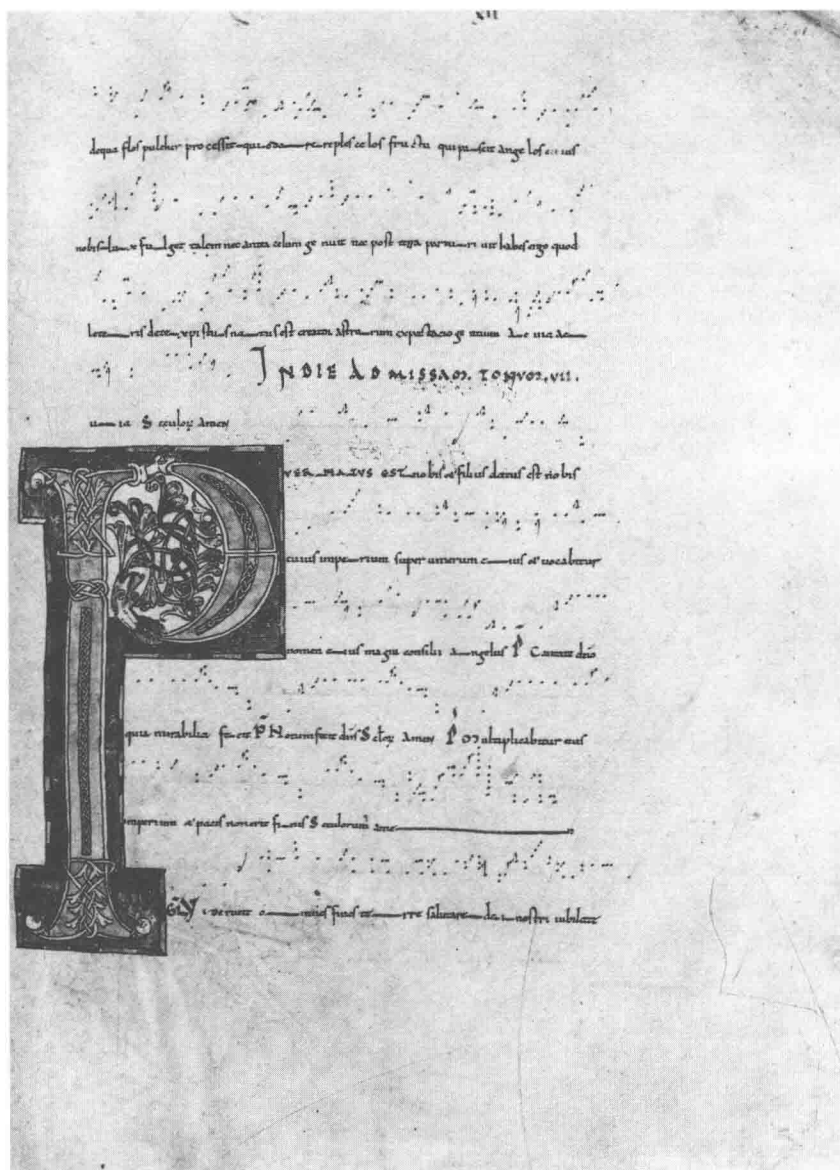 XII
dequa flos pulcher processit qui reples celos fructu qui pascit angelos
nobis lux fulget talem nec antea celum genuit nec post terra parturivit habes ergo quod
leteris natus est creator astrorum expectacio gentium Ae
uuia Seculor Amen
IN DIE AD MISSAM. TONVM. VII.
PVER NATVS EST nobis & filius datus est nobis
cuius imperium super umerum eius & uocabitur
nomen eius magni consilii angelus Cantate dno
quia mirabilia fecit Notum fecit dns Sclor Amen Multiplicabitur eius
imperium & pacis non erit finis Seculorum amen
Viderunt omnes fines terre salutare dei nostri iubilate